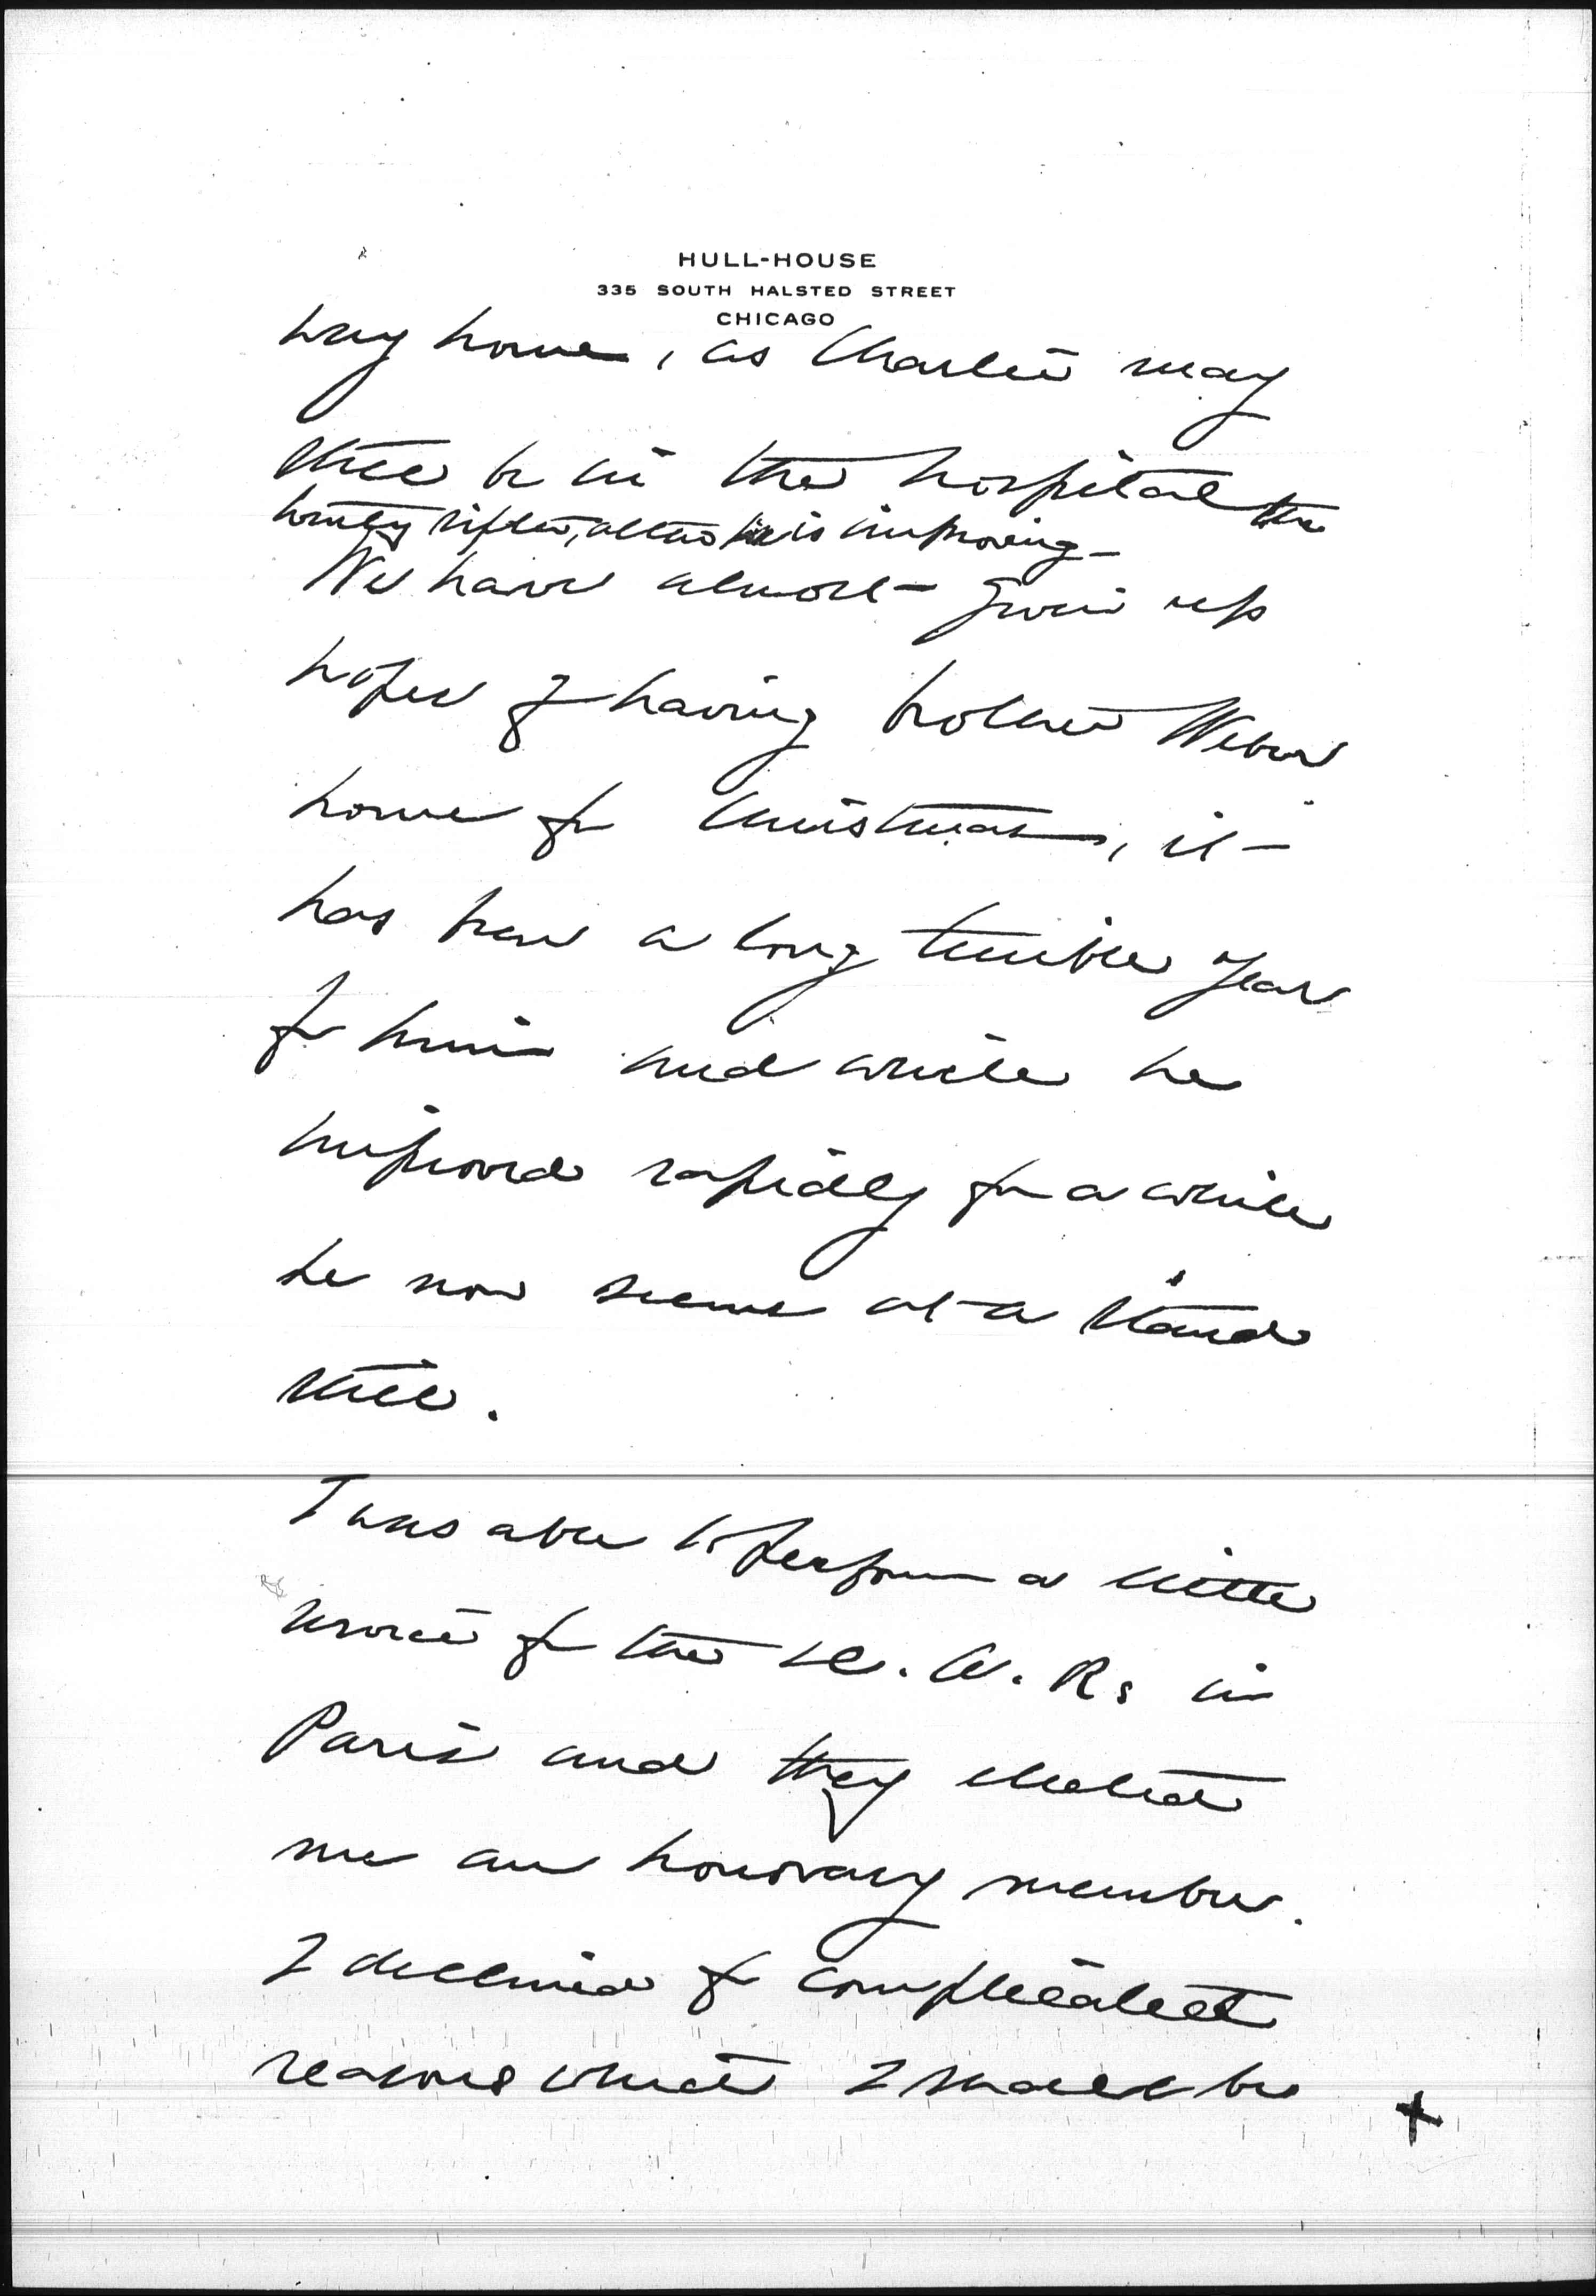 HULL-HOUSE
335 SOUTH HALSTED STREET
CHICAGO
way home, as Charlie may
still be in the hospital the
twenty fifth, altho he is improving—
We have almost given up
hopes of having brother Weber
home for Christmas, it
has been a long terrible year
for him and while he
improved rapidly for a while
he now seems at a stand
still.
I was able to perform a little
service for the D. A. R. in
Paris and they elected
me an honorary member.
I declined for complicated
reasons which I shall be